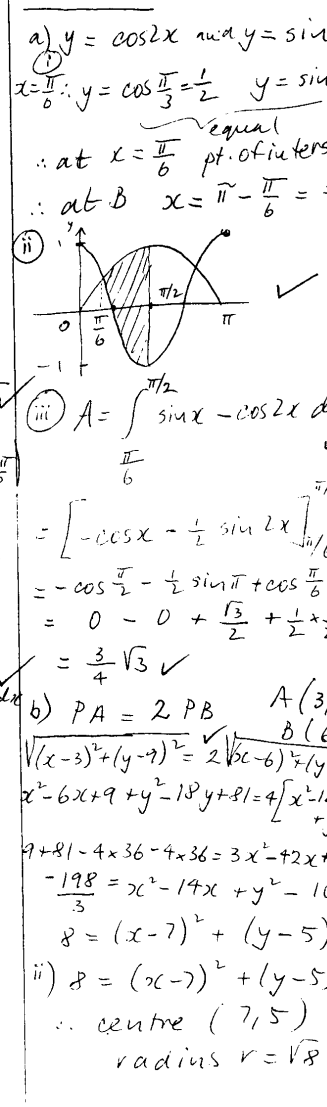 a) y = cos2x and y = sin
(i)
x = π/6 ∴ y = cos π/3 = 1/2 y = sin
equal
∴ at x = π/6 pt. of inters
∴ at B x = π - π/6 =
(ii) y
1
0 π/6 π/2 π
-1
(iii) A = ∫_{π/6}^{π/2} sinx - cos2x d
= [-cosx - 1/2 sin 2x]
= -cos π/2 - 1/2 sinπ + cos π/6
= 0 - 0 + √3/2 + 1/2 ×
= 3/4 √3 ✓
dx
b) PA = 2 PB A(3,
B(6
√(x-3)²+(y-9)² = 2√(x-6)²+(y
x²-6x+9+y²-18y+81=4[x²-1
9+81-4×36-4×36=3x²-42x+
-198/3 = x²-14x + y² - 1
8 = (x-7)² + (y-5)
ii) 8 = (x-7)² + (y-5)
∴ centre (7,5)
radius r = √8